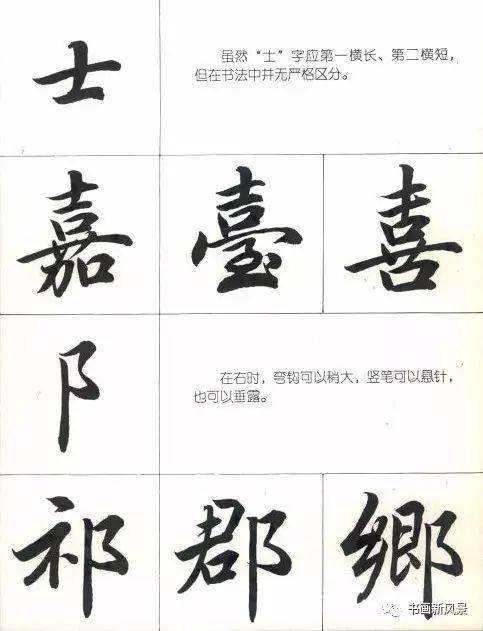 士
虽然“士”字应第一横长、第二横短，
但在书法中并无严格区分。
嘉 臺 喜
阝
在右时，弯钩可以稍大，竖笔可以悬针，
也可以垂露。
祁 郡 鄉
书画新风景